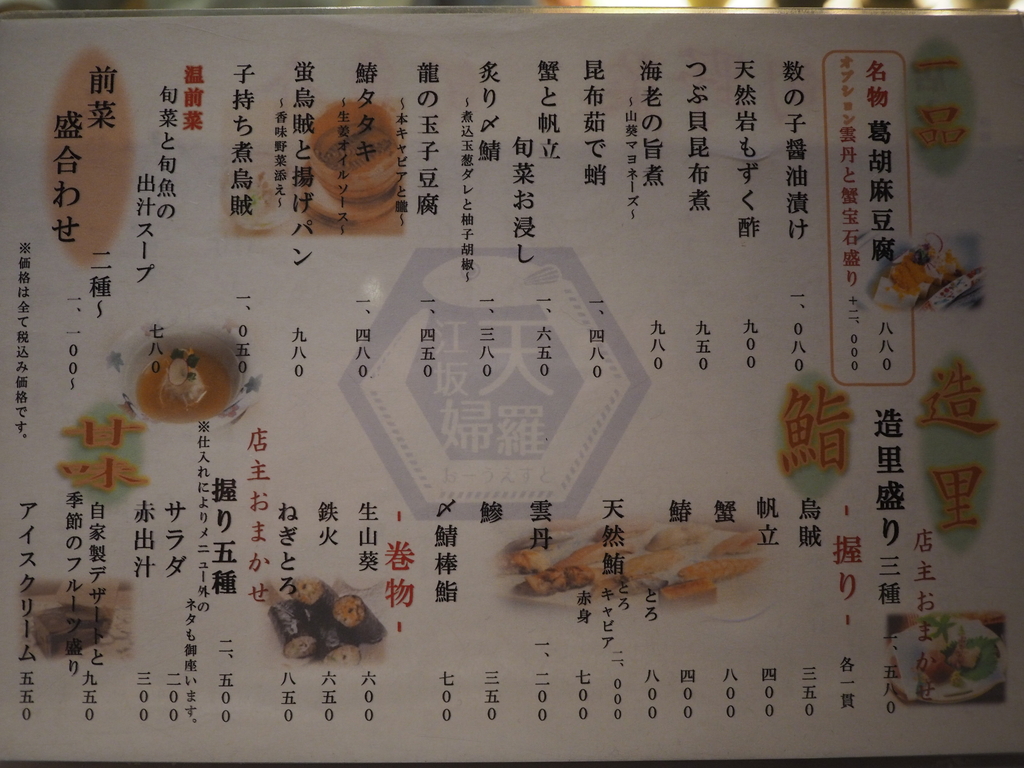 一品
名物 葛胡麻豆腐 八八〇
オプション雲丹と蟹宝石盛り +二、〇〇〇
数の子醤油漬け 一、〇八〇
天然岩もずく酢 九〇〇
つぶ貝昆布煮 九五〇
海老の旨煮 九八〇
~山葵マヨネーズ~
昆布茹で蛸 一、四八〇
蟹と帆立
旬菜お浸し 一、六五〇
炙り〆鯖 一、三八〇
~煮込玉葱ダレと柚子胡椒~
龍の玉子豆腐 一、四五〇
~本キャビアと〜
鰆タタキ 一、四八〇
~生姜オイルソース~
蛍烏賊と揚げパン 九八〇
~香味野菜添え~
子持ち煮烏賊 一、〇五〇
温前菜
旬菜と旬魚の
出汁スープ 七八〇
前菜
盛合わせ 二種~
一、一〇〇~
※価格は全て税込み価格です。
造里
造里盛り 三種 一、五八〇
店主おまかせ
鮨
-握り- 各一貫
烏賊 三五〇
帆立 四〇〇
蟹 八〇〇
鰆 四〇〇
天然鮪 とろ 八〇〇
とろキャビア 二、〇〇〇
赤身 七〇〇
雲丹 一、二〇〇
鰺 三五〇
〆鯖棒鮨 七〇〇
-巻物-
生山葵 六〇〇
鉄火 六五〇
ねぎとろ 八五〇
店主おまかせ
握り五種 二、五〇〇
※仕入れによりメニュー外の
ネタも御座います。
サラダ 二〇〇
赤出汁 三〇〇
甘味
自家製デザートと
季節のフルーツ盛り 九五〇
アイスクリーム 五五〇
江坂
天羅
婦
おーうえすと